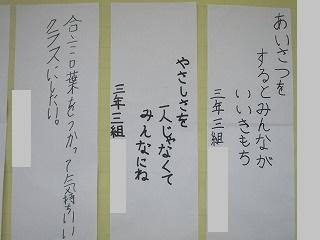 あいさつを
するとみんなが
いいきもち
三年三組
やさしさを
一人じゃなくて
みんなにね
三年三組
合言葉をつかって気持ちいい
クラスにしたい。